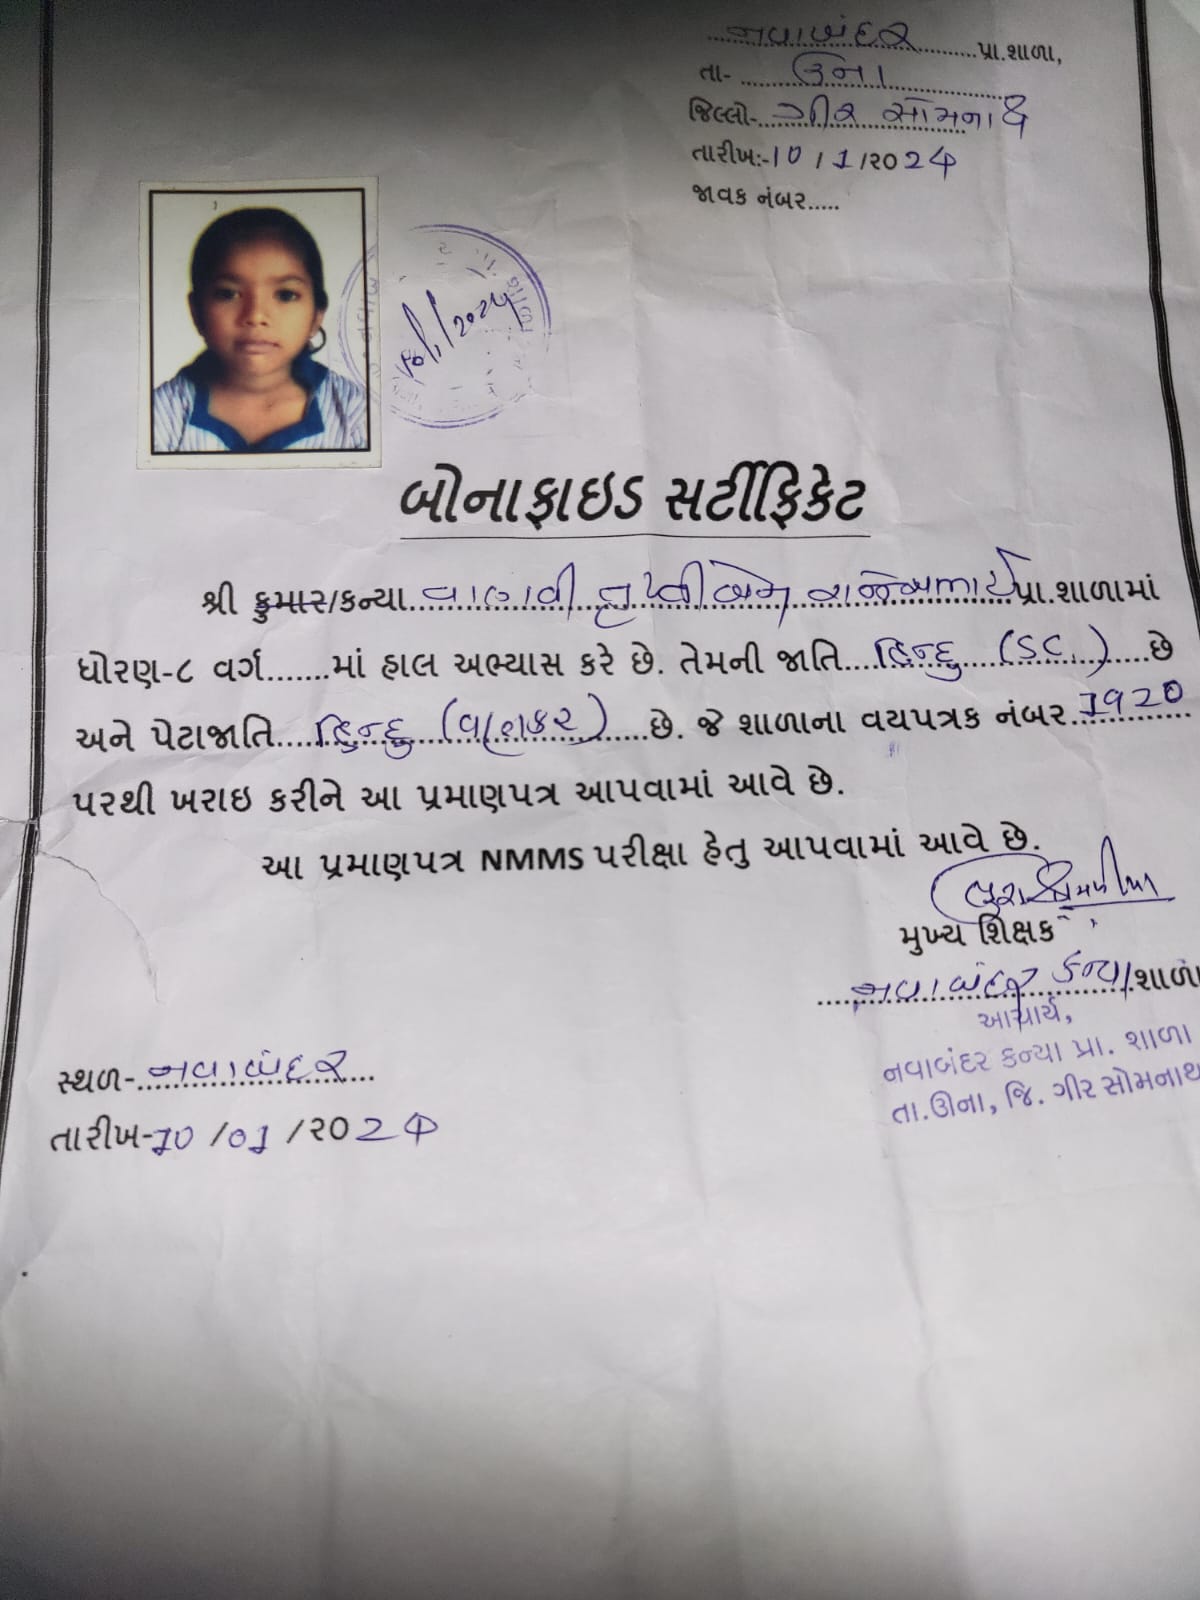 નવાબંદર પ્રા.શાળા,
તા- ઉના
જિલ્લો- ગીર સોમનાથ
તારીખઃ-10/1/૨૦24
જાવક નંબર.....
૧૦/૧/૨૦૨૪
બોનાફાઇડ સર્ટીફિકેટ
શ્રી કુમાર/કન્યા વાળવી તૃપ્તીબેન પ્રા.શાળામાં
ધોરણ-૮ વર્ગ.......માં હાલ અભ્યાસ કરે છે. તેમની જાતિ...હિન્દુ (SC)....છે
અને પેટાજાતિ....હિન્દુ (વણકર)....છે. જે શાળાના વયપત્રક નંબર 1920
પરથી ખરાઇ કરીને આ પ્રમાણપત્ર આપવામાં આવે છે.
આ પ્રમાણપત્ર NMMS પરીક્ષા હેતુ આપવામાં આવે છે.
મુખ્ય શિક્ષક
નવાબંદર કન્યા શાળા
આચાર્ય,
નવાબંદર કન્યા પ્રા. શાળા
તા.ઊના, જિ. ગીર સોમનાથ
સ્થળ- નવાબંદર
તારીખ-10/01/૨૦24